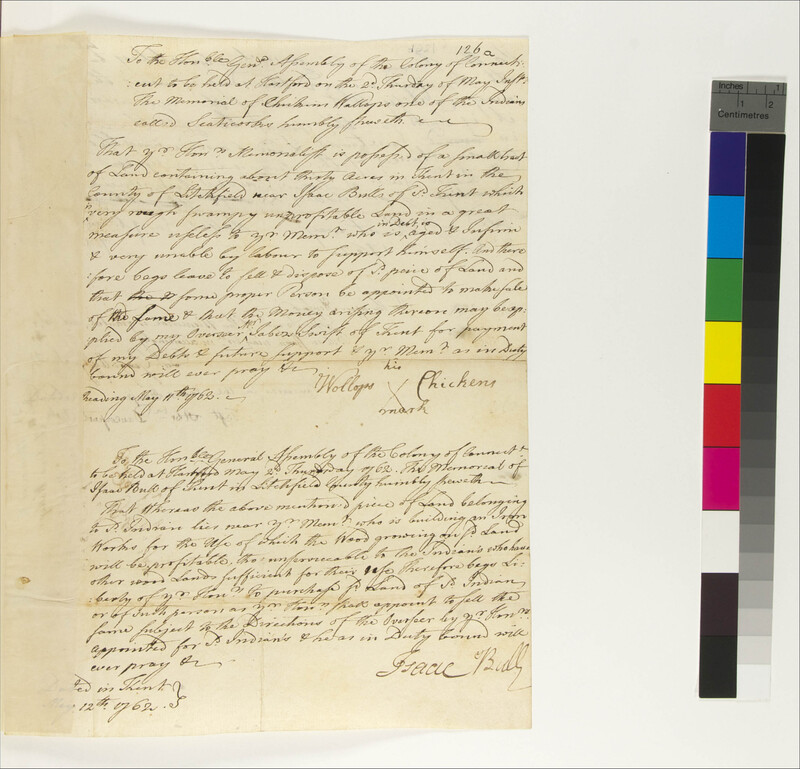 126a
To the Hon:ble Gen:ll Assembly of the Colony of Connect:
:cut to be held at Hartford on the 2d Thursday of May Inst.
The Memorial of Chickens Wallops one of the Indians
called Scaticooks humbly sheweth
That yr Honrs Memorialist is possess:d of a small tract
of Land containing about thirty Acres in Kent in the
County of Litchfield near Isaac Bulls of sd Kent which
very rough swampy unprofitable Land in a great
measure useless to yr Memst. who is in Debt, is aged & Infirm
& very unable by labour to support himself. And there
:fore begs leave to sell & dispose of sd peice of Land and
that some proper Person be appointed to make sale
of the same & that the Money arising thereon may be ap
:plied by my Overseer Jabez Swift of Kent for payment
of my Debts & future support & yr Memst. as in Duty
bound will ever pray &c
Reading May 11th 1762
Wollops his Chickens
mark
To the Hon:ble General Assembly of the Colony of Connectt.
to be held at Hartford May 2d Thursday 1762. The Memorial of
Isaac Bull of Kent in Litchfield County humbly sheweth
That Whereas the above mention'd piece of Land belonging
to sd Indian lies near yr Memst. who is building an Iron
Works for the Use of which the Wood growing on sd Land
will be profitable, tho unserviceable to the Indians who have
other wood Lands sufficient for their use Therefore begs Li:
:berty of yr Honrs to purchase sd Land of sd Indian
or of such person as yr Honrs shall appoint to sell the
same subject to the Directions of the Overseer by yr Honrs
appointed for sd Indians & he as in Duty bound will
ever pray &c
Isaac Bull
ted in Kent
12th. 1762.